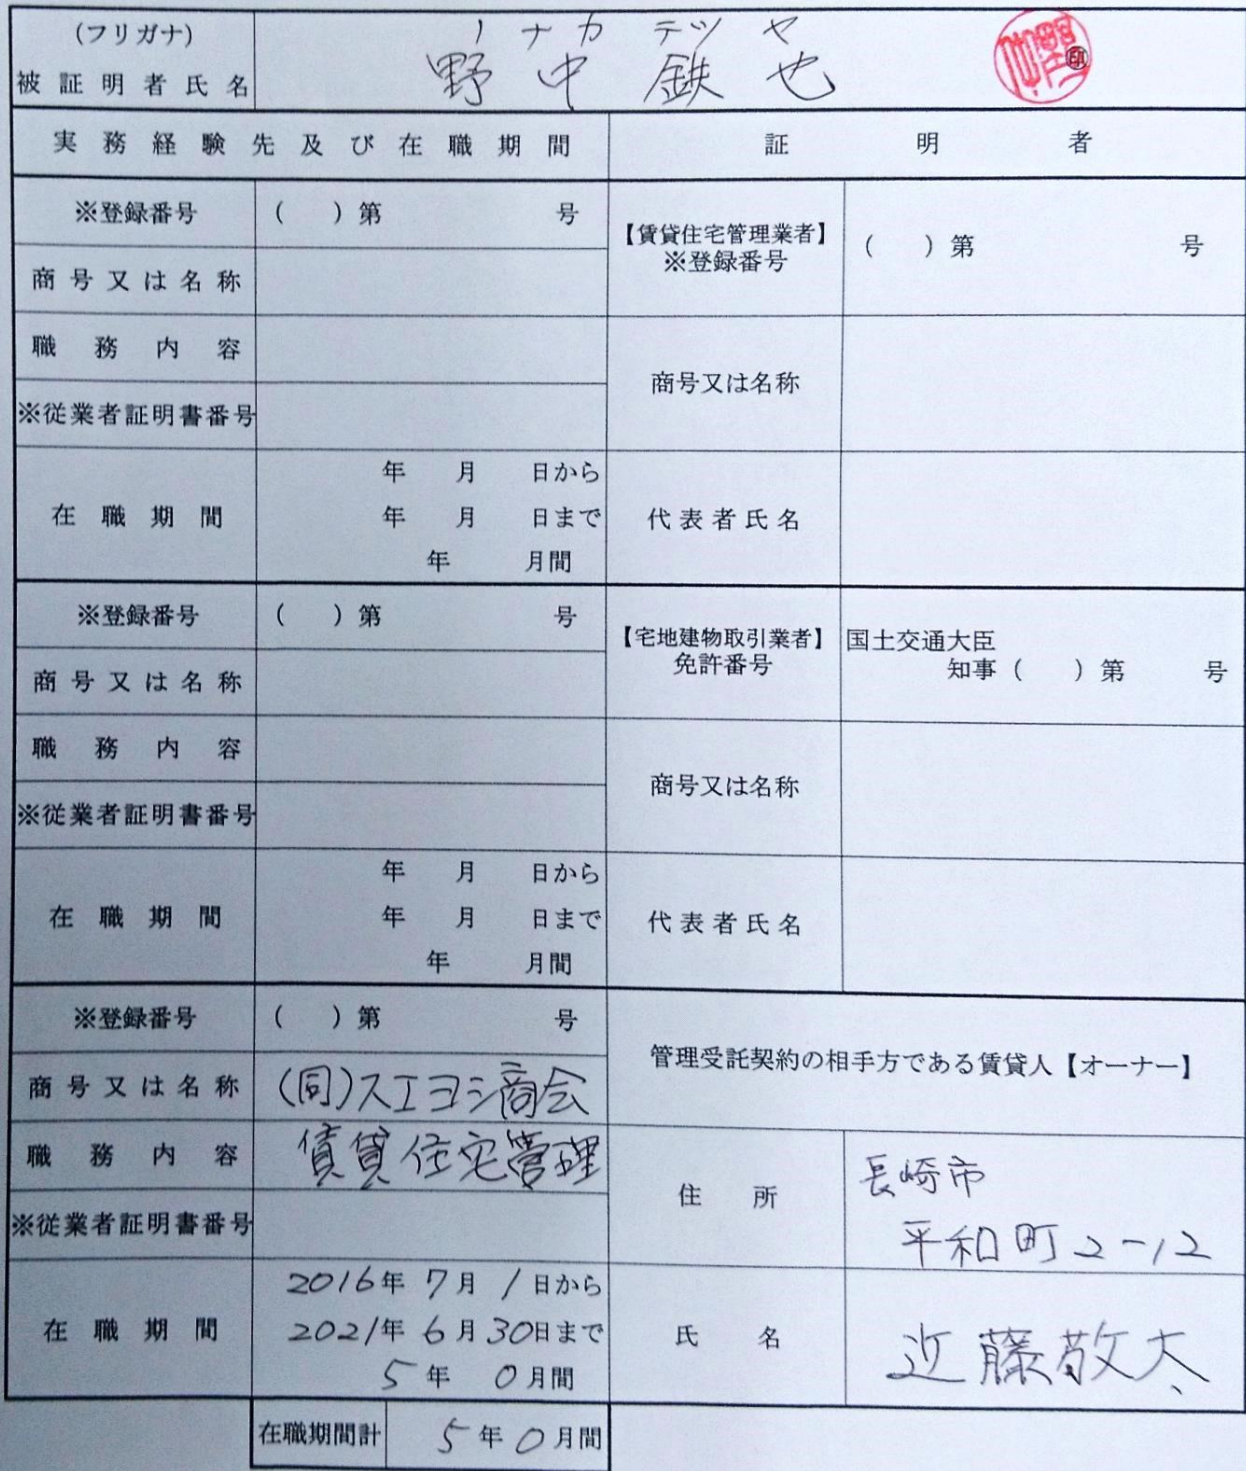 (フリガナ) ノナカ テツヤ
被証明者氏名 野中 鉄也 ㊞
実務経験先及び在職期間 証明者
※登録番号 ( ) 第 号
商号又は名称
職務内容
※従業者証明書番号
在職期間
年 月 日から
年 月 日まで
年 月間
【賃貸住宅管理業者】
※登録番号 ( ) 第 号
商号又は名称
代表者氏名
※登録番号 ( ) 第 号
商号又は名称
職務内容
※従業者証明書番号
在職期間
年 月 日から
年 月 日まで
年 月間
【宅地建物取引業者】
免許番号
国土交通大臣
知事 ( ) 第 号
商号又は名称
代表者氏名
※登録番号 ( ) 第 号
商号又は名称 (同)スエヨシ商会
職務内容 賃貸住宅管理
※従業者証明書番号
在職期間
2016年 7月 1日から
2021年 6月 30日まで
5年 0月間
管理受託契約の相手方である賃貸人【オーナー】
住所
長崎市
平和町2-12
氏名 近藤敬太
在職期間計 5年0月間